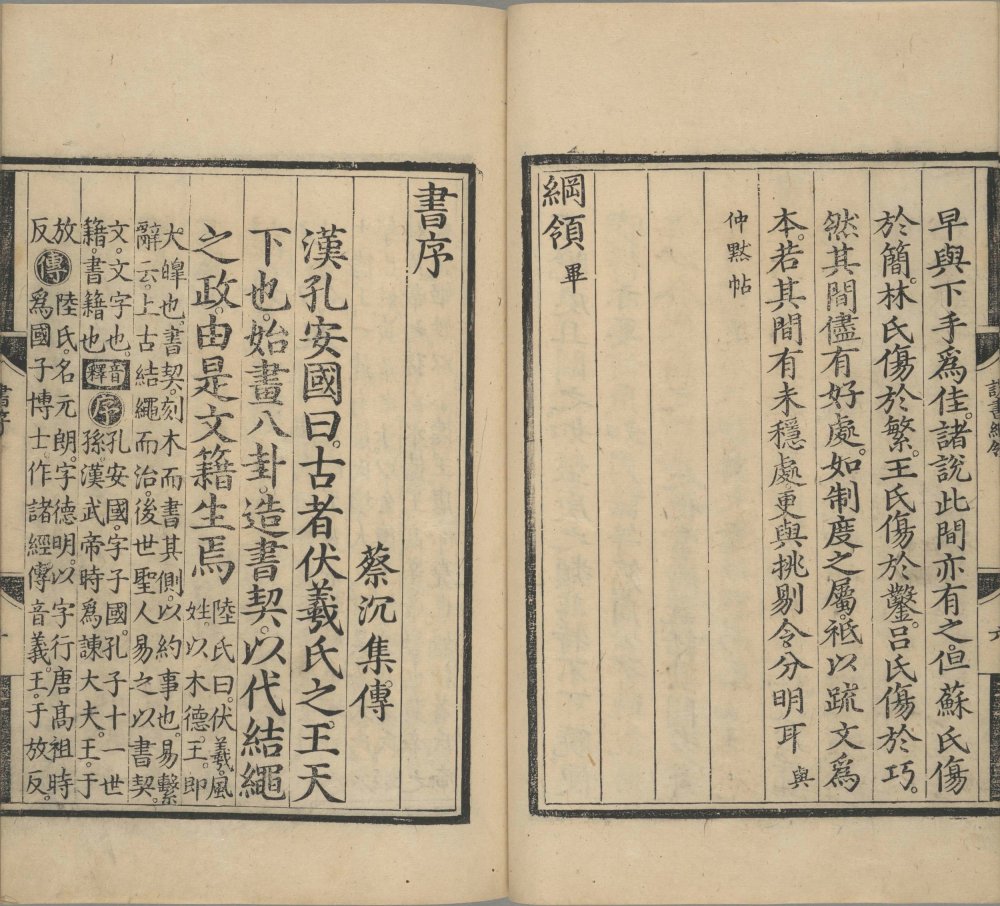 早與下手爲佳。諸說此間亦有之。但蘇氏傷
於簡。林氏傷於繁。王氏傷於鑿。呂氏傷於巧。
然其間儘有好處。如制度之屬。祗以疏文爲
本。若其間有未穩處。更與挑剔令分明耳 與
仲黙帖
綱領 畢
書序
蔡沉集傳
漢孔安國曰。古者伏羲氏之王天
下也。始畫八卦。造書契。以代結繩
之政。由是文籍生焉 陸氏曰。伏羲。風
姓。以木德王。即
太皥也。書契。刻木而書其側。以約事也。易繫
辭云。上古結繩而治。後世聖人易之以書契。
文。文字也。
籍。書籍也 音釋 序 孔安國。字子國。孔子十一世
孫。漢武帝時爲諫大夫。王。于
放。陸氏。名元朗。字德明。以字行。唐高祖時
反 傳 爲國子博士。作諸經傳音義。王。于放反。
書序